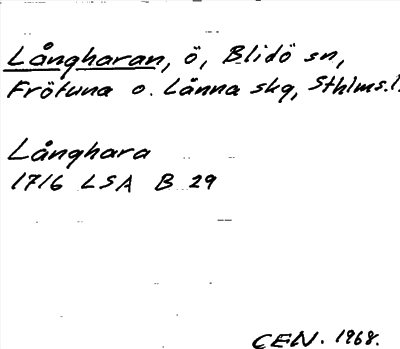 Långharan, ö, Blidö sn,
Frötuna o. Länna skg, Sthlms.l.
Långhara
1716 LSA B 29
CEN. 1968.